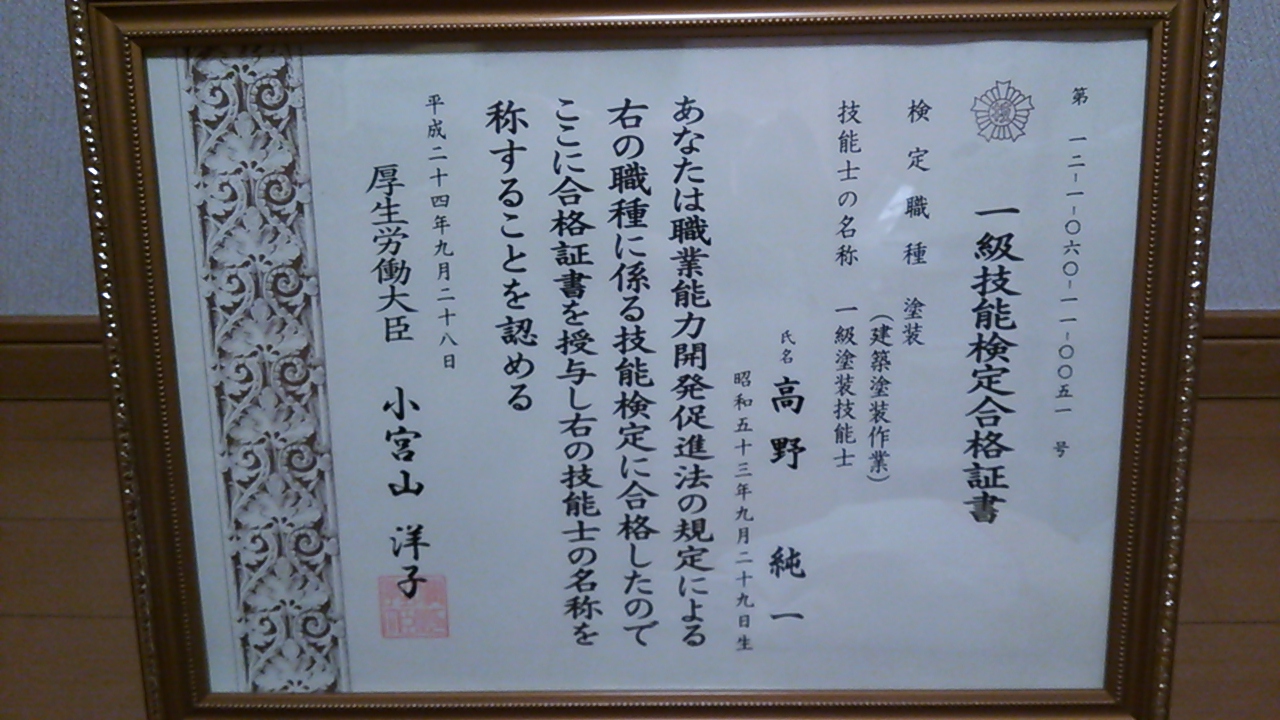 第一二-一-〇六〇-一一-〇〇五一号
一級技能検定合格証書
検定職種 塗装
(建築塗装作業)
技能士の名称 一級塗装技能士
氏名 高野 純一
昭和五十三年九月二十九日生
あなたは職業能力開発促進法の規定による
右の職種に係る技能検定に合格したので
ここに合格証書を授与し右の技能士の名称を
称することを認める
平成二十四年九月二十八日
厚生労働大臣 小宮山 洋子